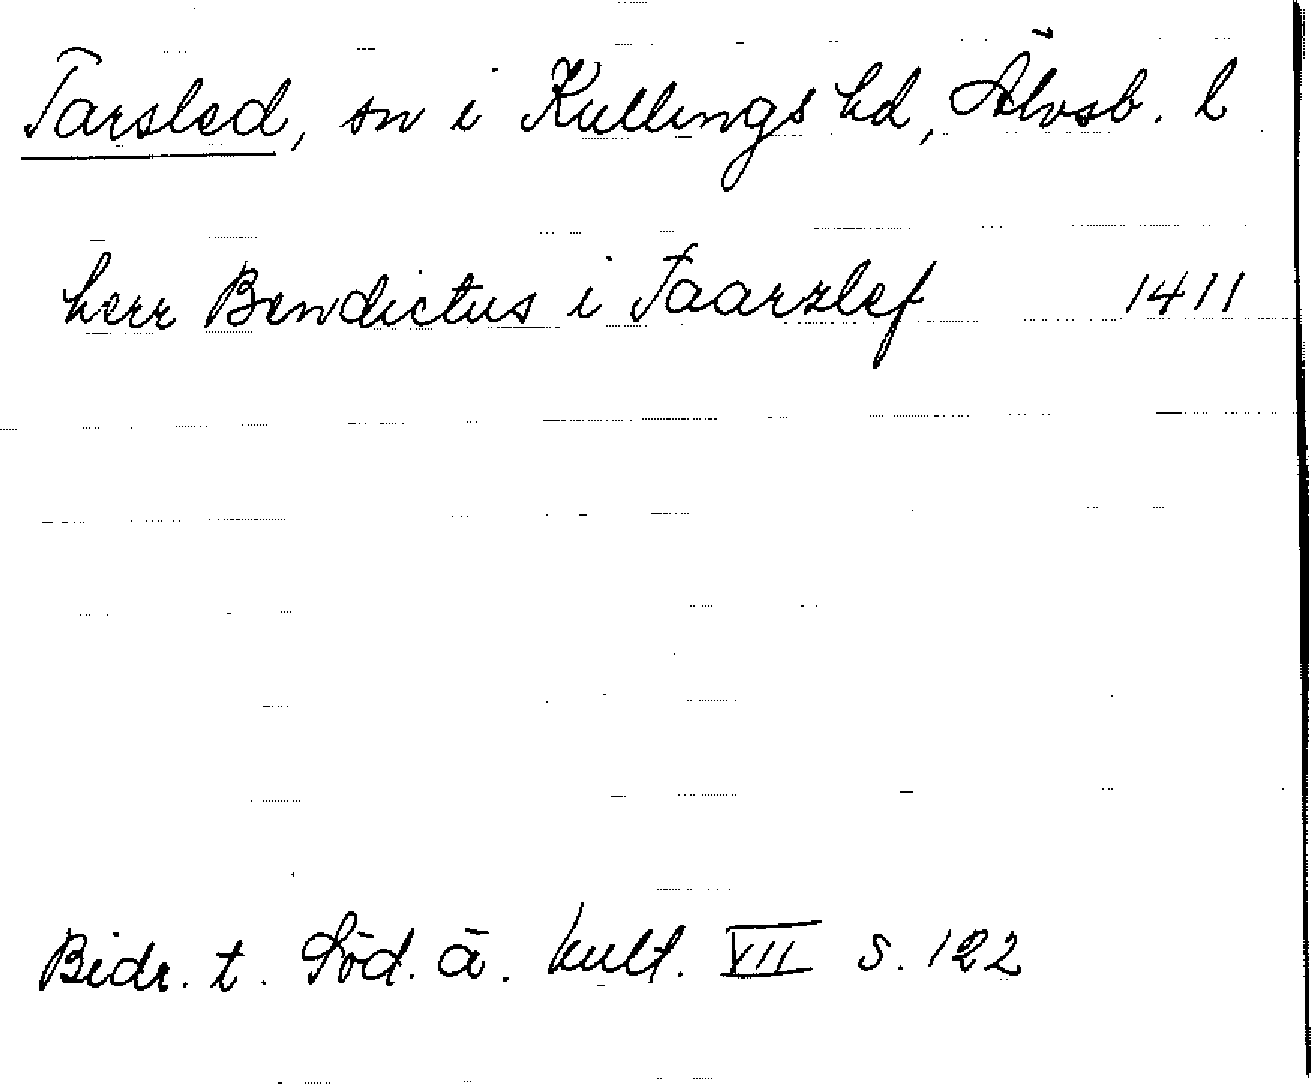 Tarsled, sn i Kullings hd, Älvsb. l
herr Bendictus i Taarzlef 1411
Bidr. t. Söd. ä. kult. VII s. 122